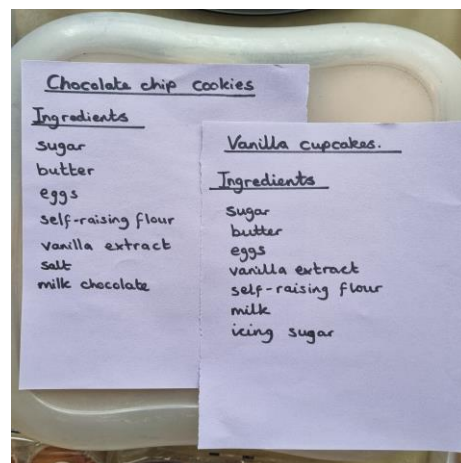 Chocolate chip cookies
Ingredients
sugar
butter
eggs
self-raising flour
vanilla extract
salt
milk chocolate
Vanilla cupcakes.
Ingredients
sugar
butter
eggs
vanilla extract
self-raising flour
milk
icing sugar